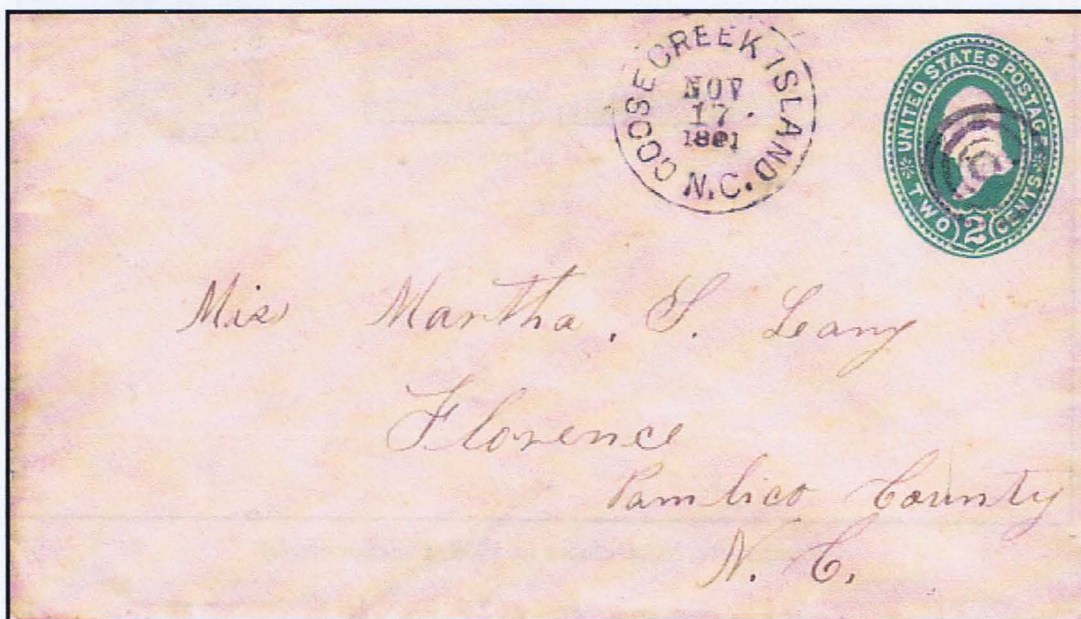 GOOSE CREEK ISLAND.
NOV
17
1891
N.C.
UNITED STATES POSTAGE
TWO 2 CENTS
Mis Martha. S. Leary
Florence
Pamlico County
N. C.